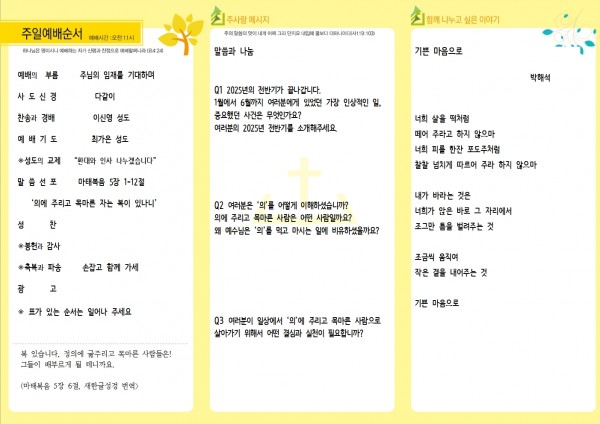 주일예배순서 예배시간 : 오전 11시
하나님은 영이시니 예배하는 자가 신령과 진정으로 예배할찌니라 (요4:24)
예배의 부름 주님의 임재를 기대하며
사 도 신 경 다같이
찬송과 경배 이신영 성도
예 배 기 도 최가은 성도
※성도의 교제 "환대와 인사 나누겠습니다"
말 씀 선 포 마태복음 5장 1-12절
'의에 주리고 목마른 자는 복이 있나니'
성 찬
※봉헌과 감사
※축복과 파송 손잡고 함께 가세
광 고
※ 표가 있는 순서는 일어나 주세요
복 있습니다, 정의에 굶주리고 목마른 사람들은!
그들이 배부르게 될 테니까요.
(마태복음 5장 6절, 새한글성경 번역)
주사랑 메시지
주의 말씀의 맛이 내게 어찌 그리 단지요 내입에 꿀보다 더하니이다(시119:103)
말씀과 나눔
Q1 2025년의 전반기가 끝나갑니다.
1월에서 6월까지 여러분에게 있었던 가장 인상적인 일,
중요했던 사건은 무엇인가요?
여러분의 2025년 전반기를 소개해주세요.
Q2 여러분은 '의'를 어떻게 이해하셨습니까?
의에 주리고 목마른 사람은 어떤 사람일까요?
왜 예수님은 '의'를 먹고 마시는 일에 비유하셨을까요?
Q3 여러분이 일상에서 '의'에 주리고 목마른 사람으로
살아가기 위해서 어떤 결심과 실천이 필요합니까?
함께 나누고 싶은 이야기
기쁜 마음으로
박해석
너희 살을 떡처럼
떼어 주라고 하지 않으마
너희 피를 한잔 포도주처럼
찰찰 넘치게 따르어 주라 하지 않으마
내가 바라는 것은
너희가 앉은 바로 그 자리에서
조그만 틈을 벌려주는 것
조금씩 움직여
작은 곁을 내어주는 것
기쁜 마음으로